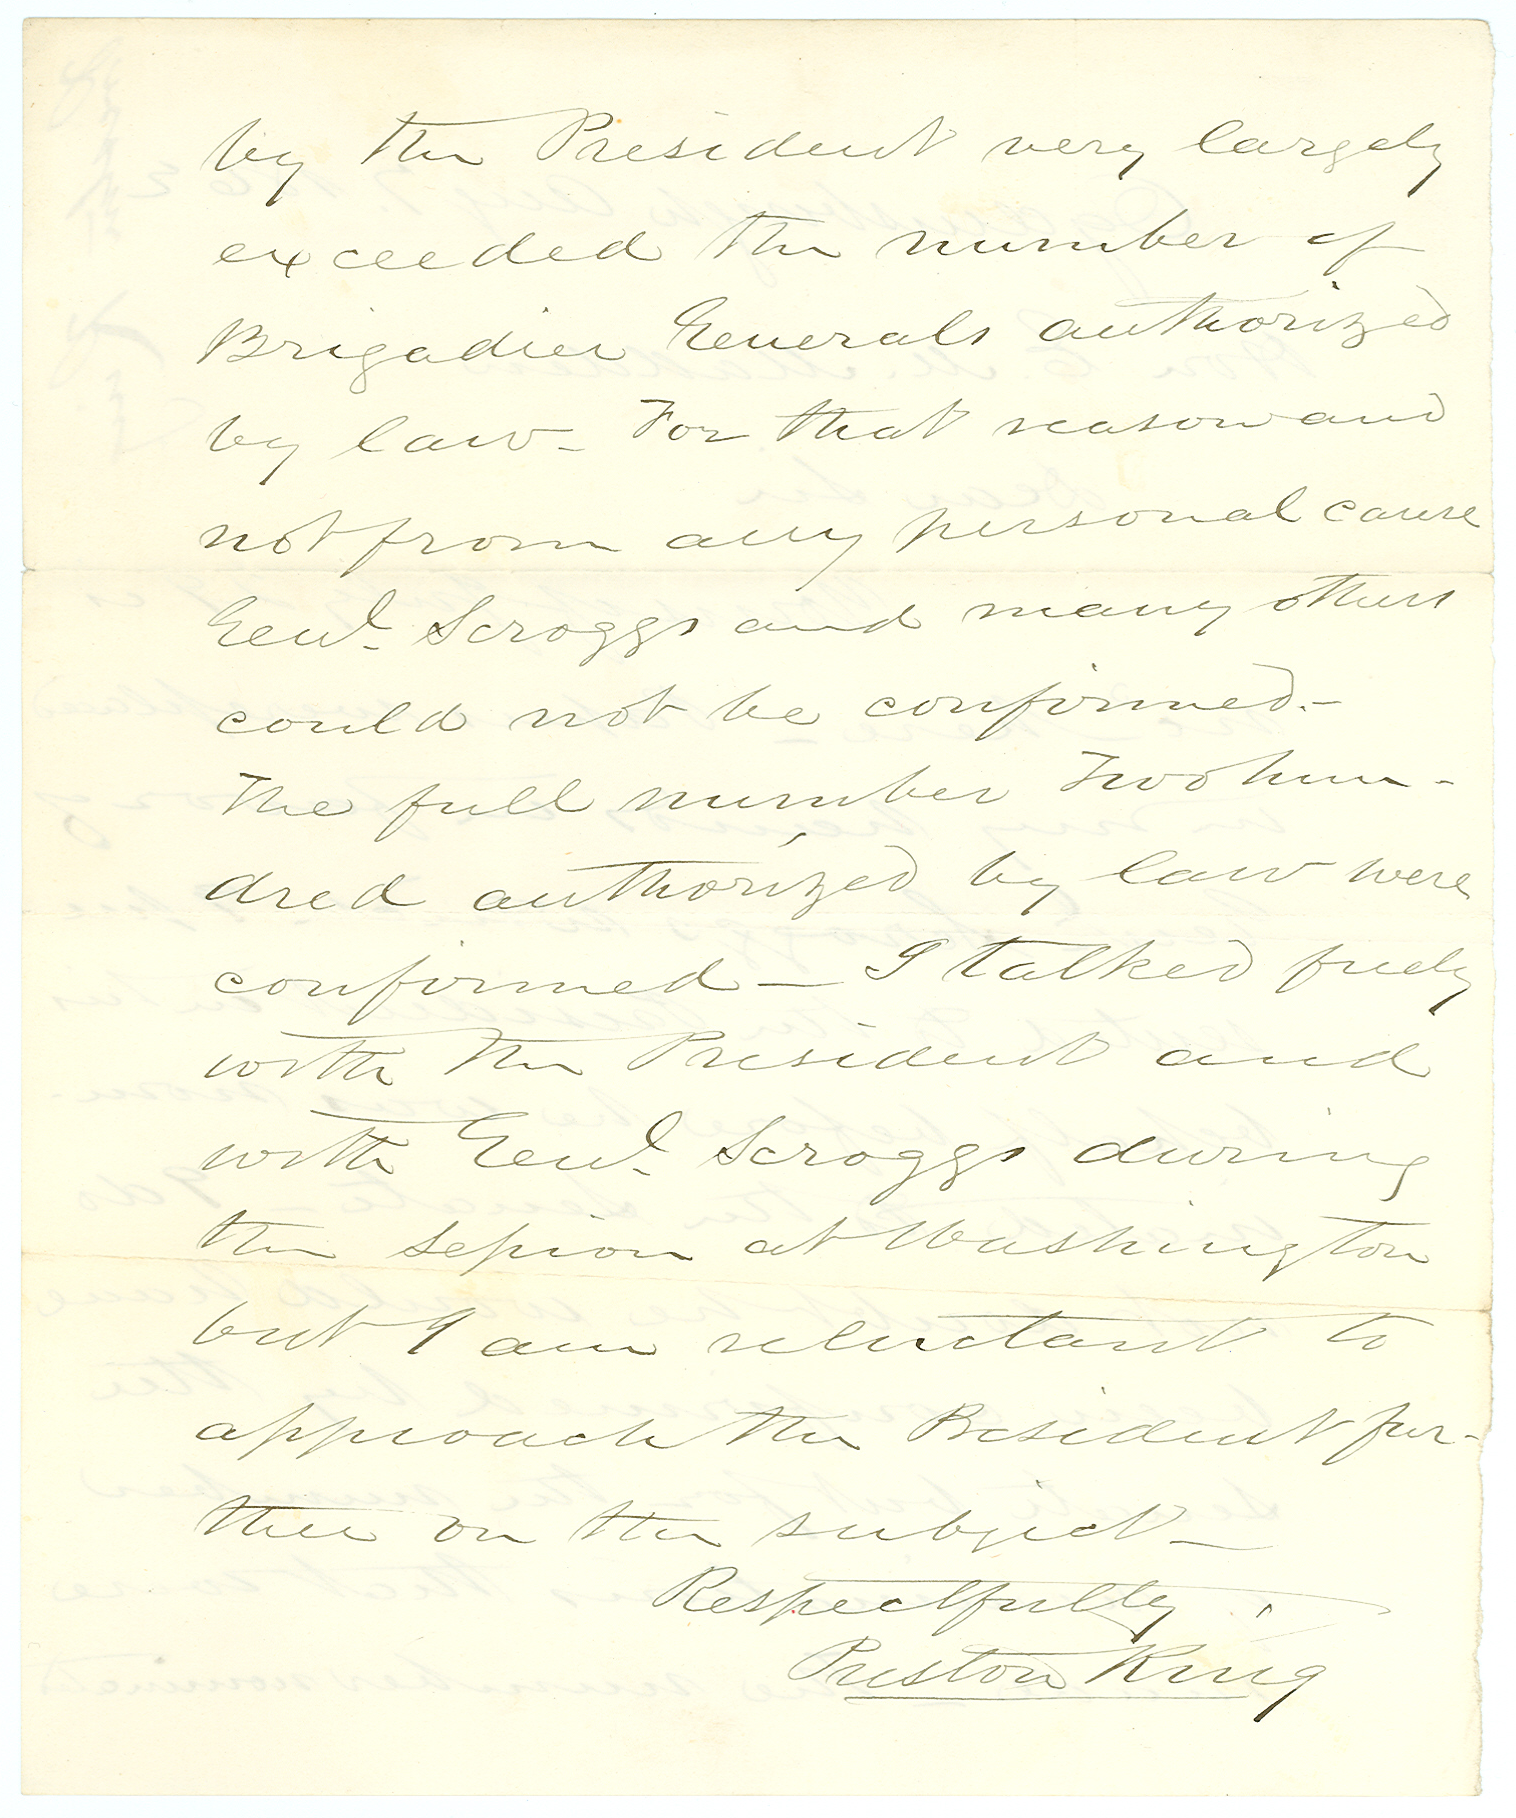 by the President very largely
exceeded the number of
Brigadier Generals authorized
by law - For that reason and
not from any personal cause
Genl. Scroggs and many others
could not be confirmed. -
The full number Two hun-
dred authorized by law were
confirmed — I talked freely
with the President and
with Genl. Scroggs during
the session at Washington
but I am reluctant to
approach the President fur-
ther on the subject —
Respectfully,
Preston King